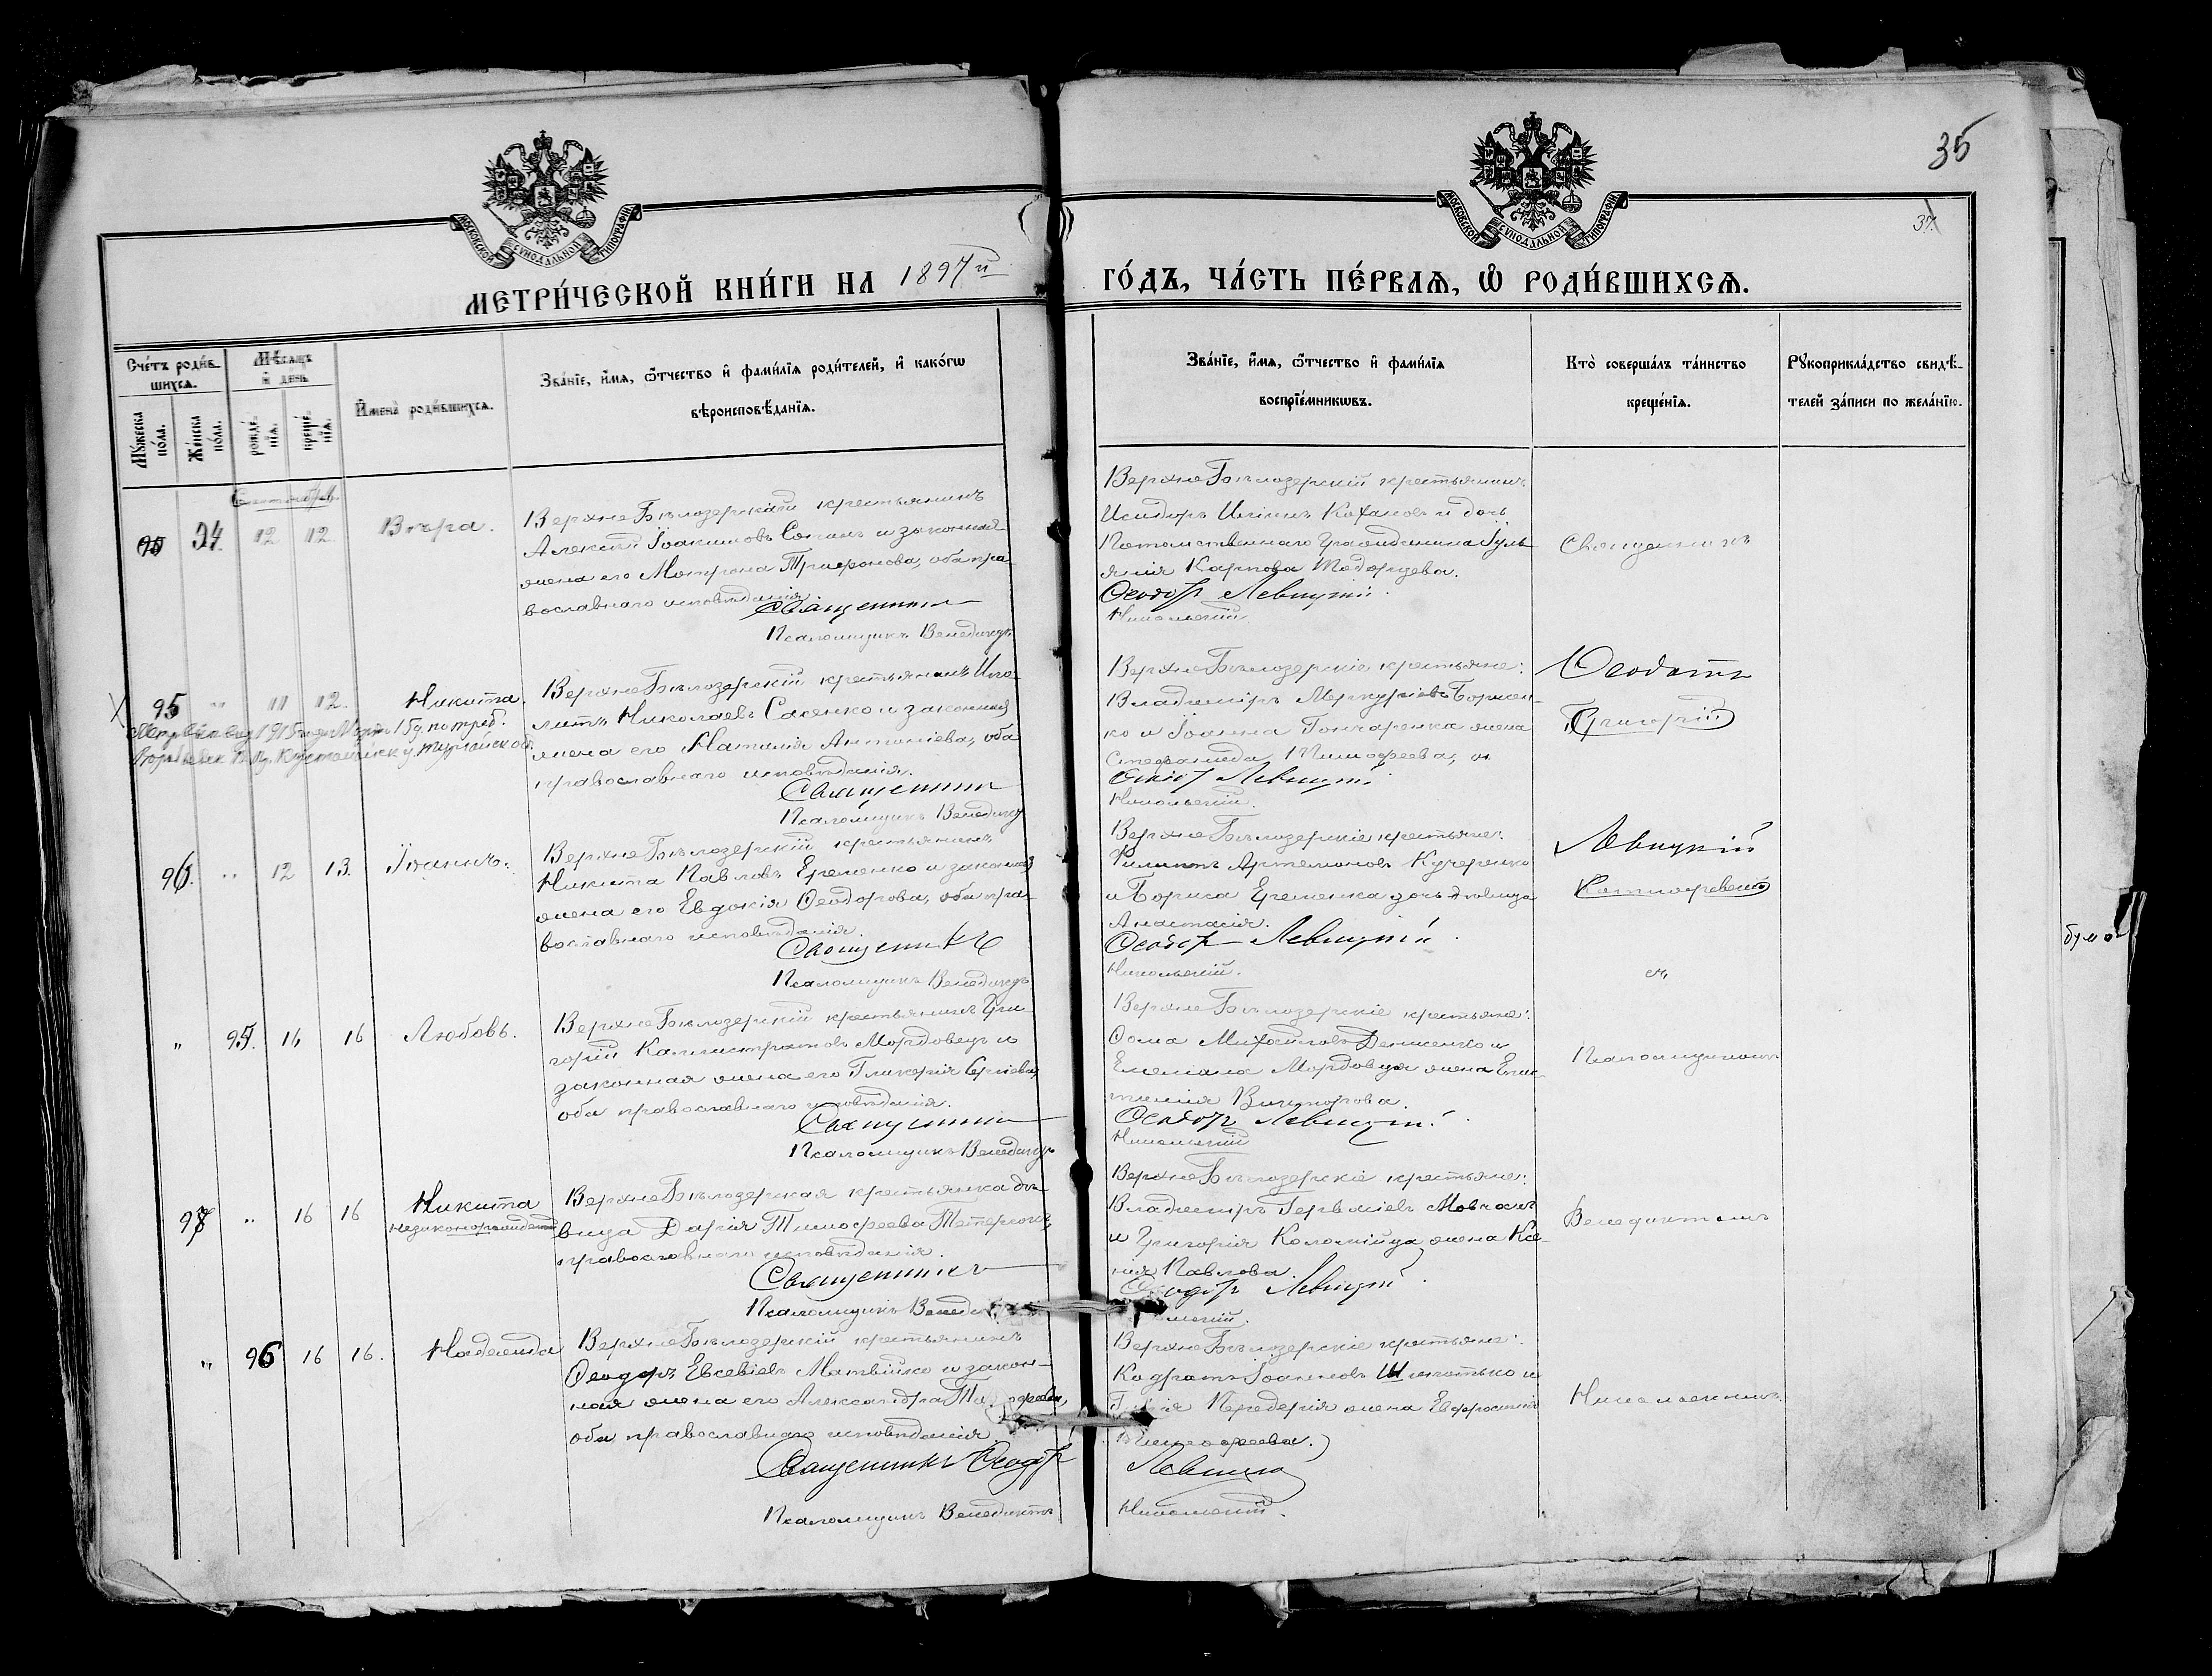 35
37.
МОСКОВСКОЙ СѴНОДАЛЬНОЙ ТИПОГРАФІИ
МОСКОВСКОЙ СѴНОДАЛЬНОЙ ТИПОГРАФІИ
МЕТРИ́ЧЕСКОЙ КНИ́ГИ НА 1897й ГО́ДЪ, ЧА́СТЬ ПЕ́РВАЯ, Ѡ҆ РОДИ́ВШИХСЯ.
Сче́тъ роди́в-
шихся.
Мꙋ́жеска
по́ла.
Же́нска
по́ла.
Мѣ́сяцъ
и҆ де́нь
рожде́-
нїя.
креще́-
нїя.
И҆мена̀ роди́вшихся.
Зва́нїе, и҆́мя, ѻ҆́тчество и҆ фами́лїя роди́телей, и҆ како́гѡ
вѣроисповѣ́данїя.
Зва́нїе, и҆́мя, ѻ҆́тчество и҆ фами́лїя
воспрїе́мникѡвъ.
Кто̀ соверша́лъ та́инство
креще́нїя.
Рꙋкоприкла́дство свидѣ́-
телей за́писи по жела́нїю.
Сентябрь
94. 12 12 Вѣра.
ВерхнеБѣлозерскій крестьянинъ
Алексѣй Іоакимовъ и законная
жена его Матрона Трифонова, оба пра
вославнаго исповѣданія.
Священникъ
Псаломщикъ Венедиктъ
ВерхнеБѣлозерскій крестьянинъ
Исидоръ Кохановъ и дочь
Потомственнаго Гражданина Іулі
анія Карпова
Ѳеодоръ Левицкій.
Никольскій.
Священникъ
95 " 11 12. Никита.
1915 года Марта
ВерхнеБѣлозерскій крестьянинъ Ипо-
литъ Николаевъ Саенко и законная
жена его Наталія Антоніева, оба
православнаго исповѣданія.
Священникъ
Псаломщикъ Венедиктъ
ВерхнеБѣлозерскіе крестьяне:
Владиміръ Меркуріевъ Борисен-
ко и Іоанна Гончаренка жена
Стефанида Тимоѳеева,
Ѳеодоръ Левицкій.
Никольскій.
Ѳеодоръ
Григорій
96. " 12 13. Іоаннъ.
ВерхнеБѣлозерскій крестьянинъ
Никита Павловъ Еременко и законная
жена его Евдокія Ѳеодорова, оба пра-
вославнаго исповѣданія.
Священникъ
Псаломщикъ Венедиктъ
ВерхнеБѣлозерскіе крестьяне:
Филиппъ Артемоновъ Кучеренко
и Бориса Еременка дочь дѣвица
Анастасія.
Ѳеодоръ Левицкій.
Никольскій.
Левицкій
съ
" 95. 14 16 Любовь.
ВерхнеБѣлозерскій крестьянинъ Гри-
горій Каллистратовъ Мордовецъ и
законная жена его Гликерія Сергіева,
оба православнаго исповѣданія.
Священникъ
Псаломщикъ Венедиктъ
ВерхнеБѣлозерскіе крестьяне:
Ѳома Михайловъ Денисенко и
Емеліана Мордовца жена
Викторова.
Ѳеодоръ Левицкій.
Никольскій
Псаломщикомъ
97 " 16 16 Никита
незаконорожденный
ВерхнеБѣлозерская крестьянка дѣ-
вица Дарія Тимоѳеева
православнаго исповѣданія.
Священникъ
Псаломщикъ Венедиктъ
ВерхнеБѣлозерскіе крестьяне:
Владиміръ Гервасіевъ Мовчанъ
и Григорія Коломійца жена Ксе-
нія Павлова.
Ѳеодоръ Левицкій
Никольскій.
Венедиктомъ
" 96 16 16. Надежда
ВерхнеБѣлозерскій крестьянинъ
Ѳеодоръ Евсевіевъ Матвійко и закон-
ная жена его Александра
оба православнаго исповѣданія.
Священникъ Ѳеодоръ
Псаломщикъ Венедиктъ
ВерхнеБѣлозерскіе крестьяне:
Кодратъ Іоанновъ и
Передерія жена Евфросинія
Тимоѳеева.
Левицкій
Никольскій.
Никольскимъ.